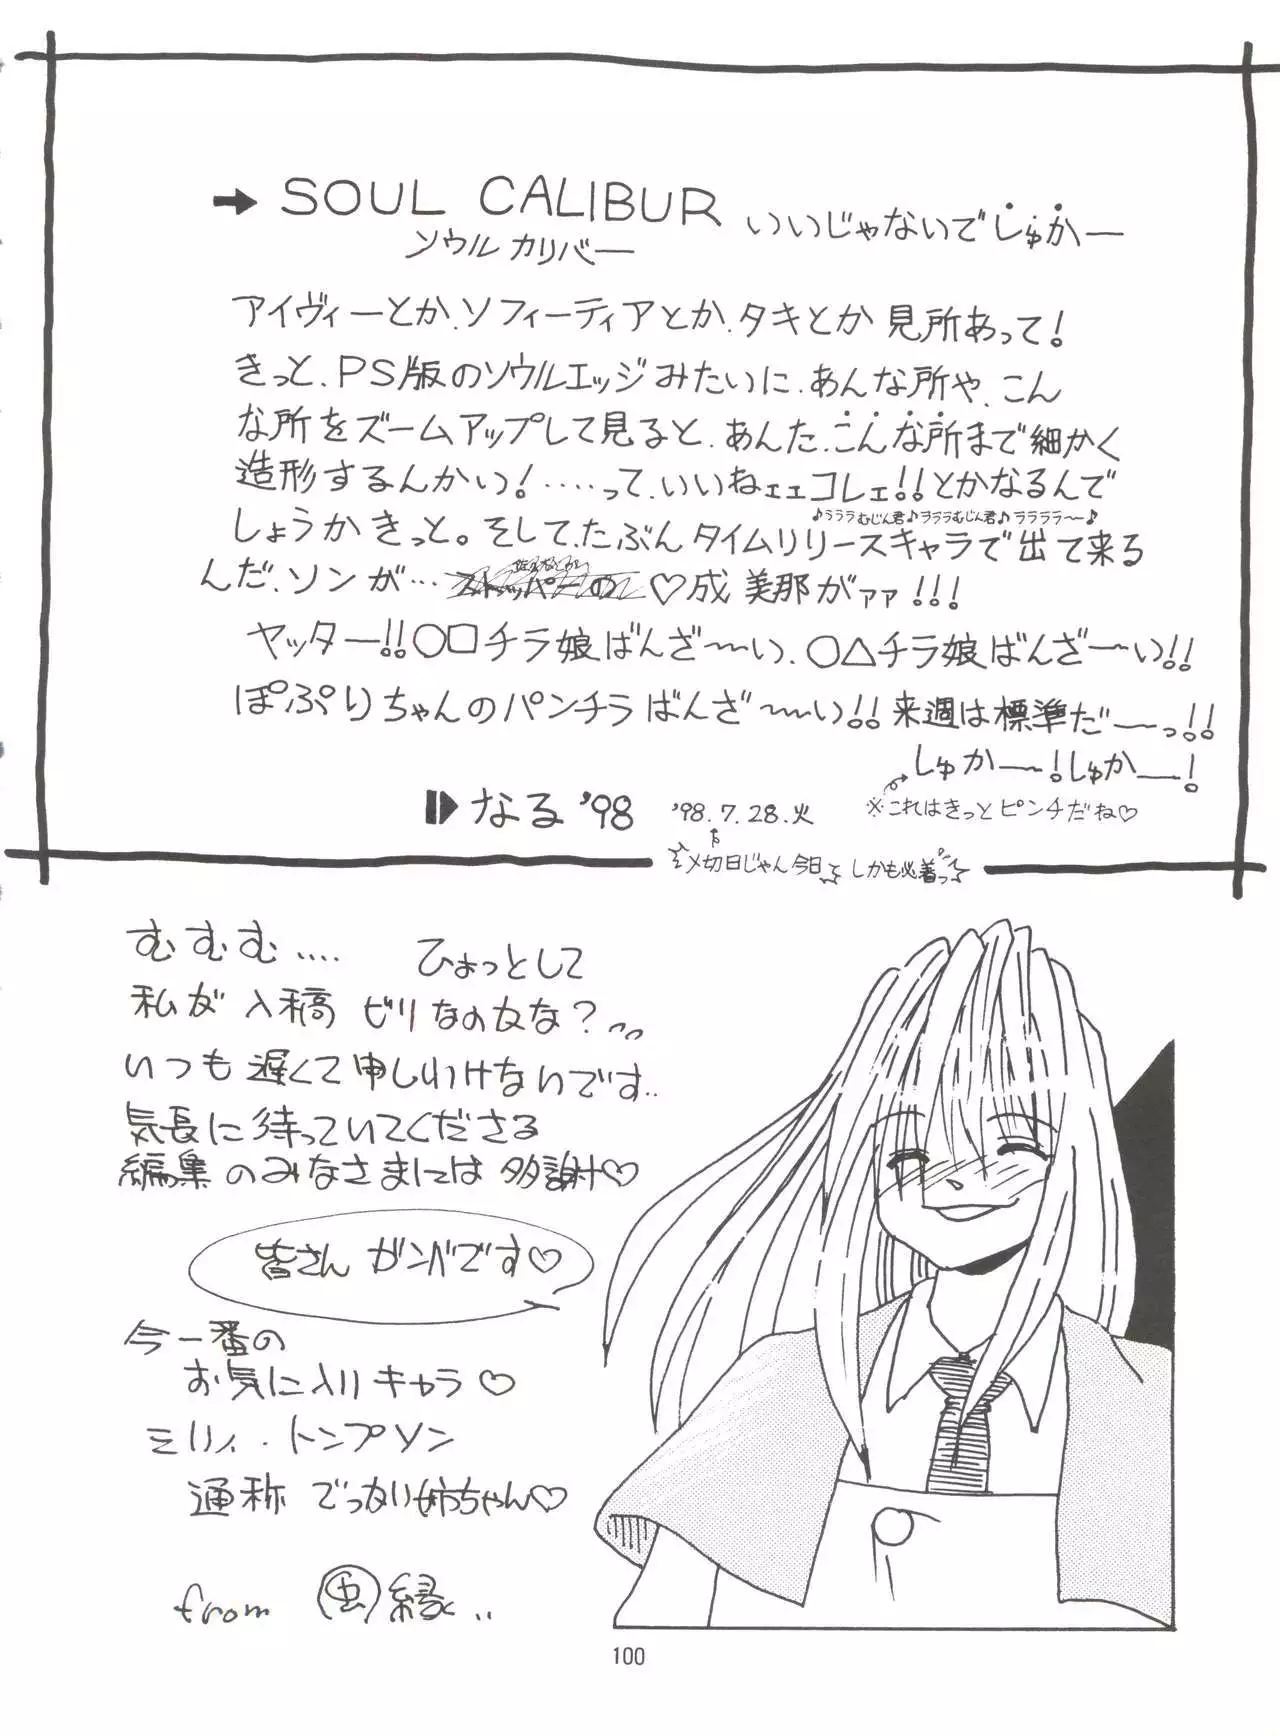 → SOUL CALIBUR いいじゃないでしゅかー
ソウル カリバー
アイヴィーとか、ソフィーティアとか、タキとか 見所あって!
きっと、PS版のソウルエッジみたいに、あんな所や、こん
な所をズームアップして見ると、あんた、こんな所まで細かく
造形するんかい!……って、いいねェェコレェ!!とかなるんで
♪ラララむじん君♪ラララむじん君♪ララララ〜♪
しょうかきっと。そして、たぶんタイムリリースキャラで出て来る
んだ、ソンが… ストッパーの ♡成美那がァァ!!!
ヤッター!!○□チラ娘ばんざ〜〜い、○△チラ娘ばんざ〜い!!
ぽぷりちゃんのパンチラばんざ〜〜い!!来週は標準だーっ!!
しゅかー!しゅかー!
※これはきっとピンチだね♡
なる'98
'98.7.28.火
〆切日じゃん今日 しかも必着っ
むむむ.... ひょっとして
私が入稿ビリなのかな?
いつも遅くて申しわけないです..
気長に待っていてくださる
編集のみなさまには多謝♡
皆さんガンバです♡
今一番の
お気に入りキャラ♡
ミリィ・トンプソン
通称 でっかい姉ちゃん♡
from 虫縁..
100